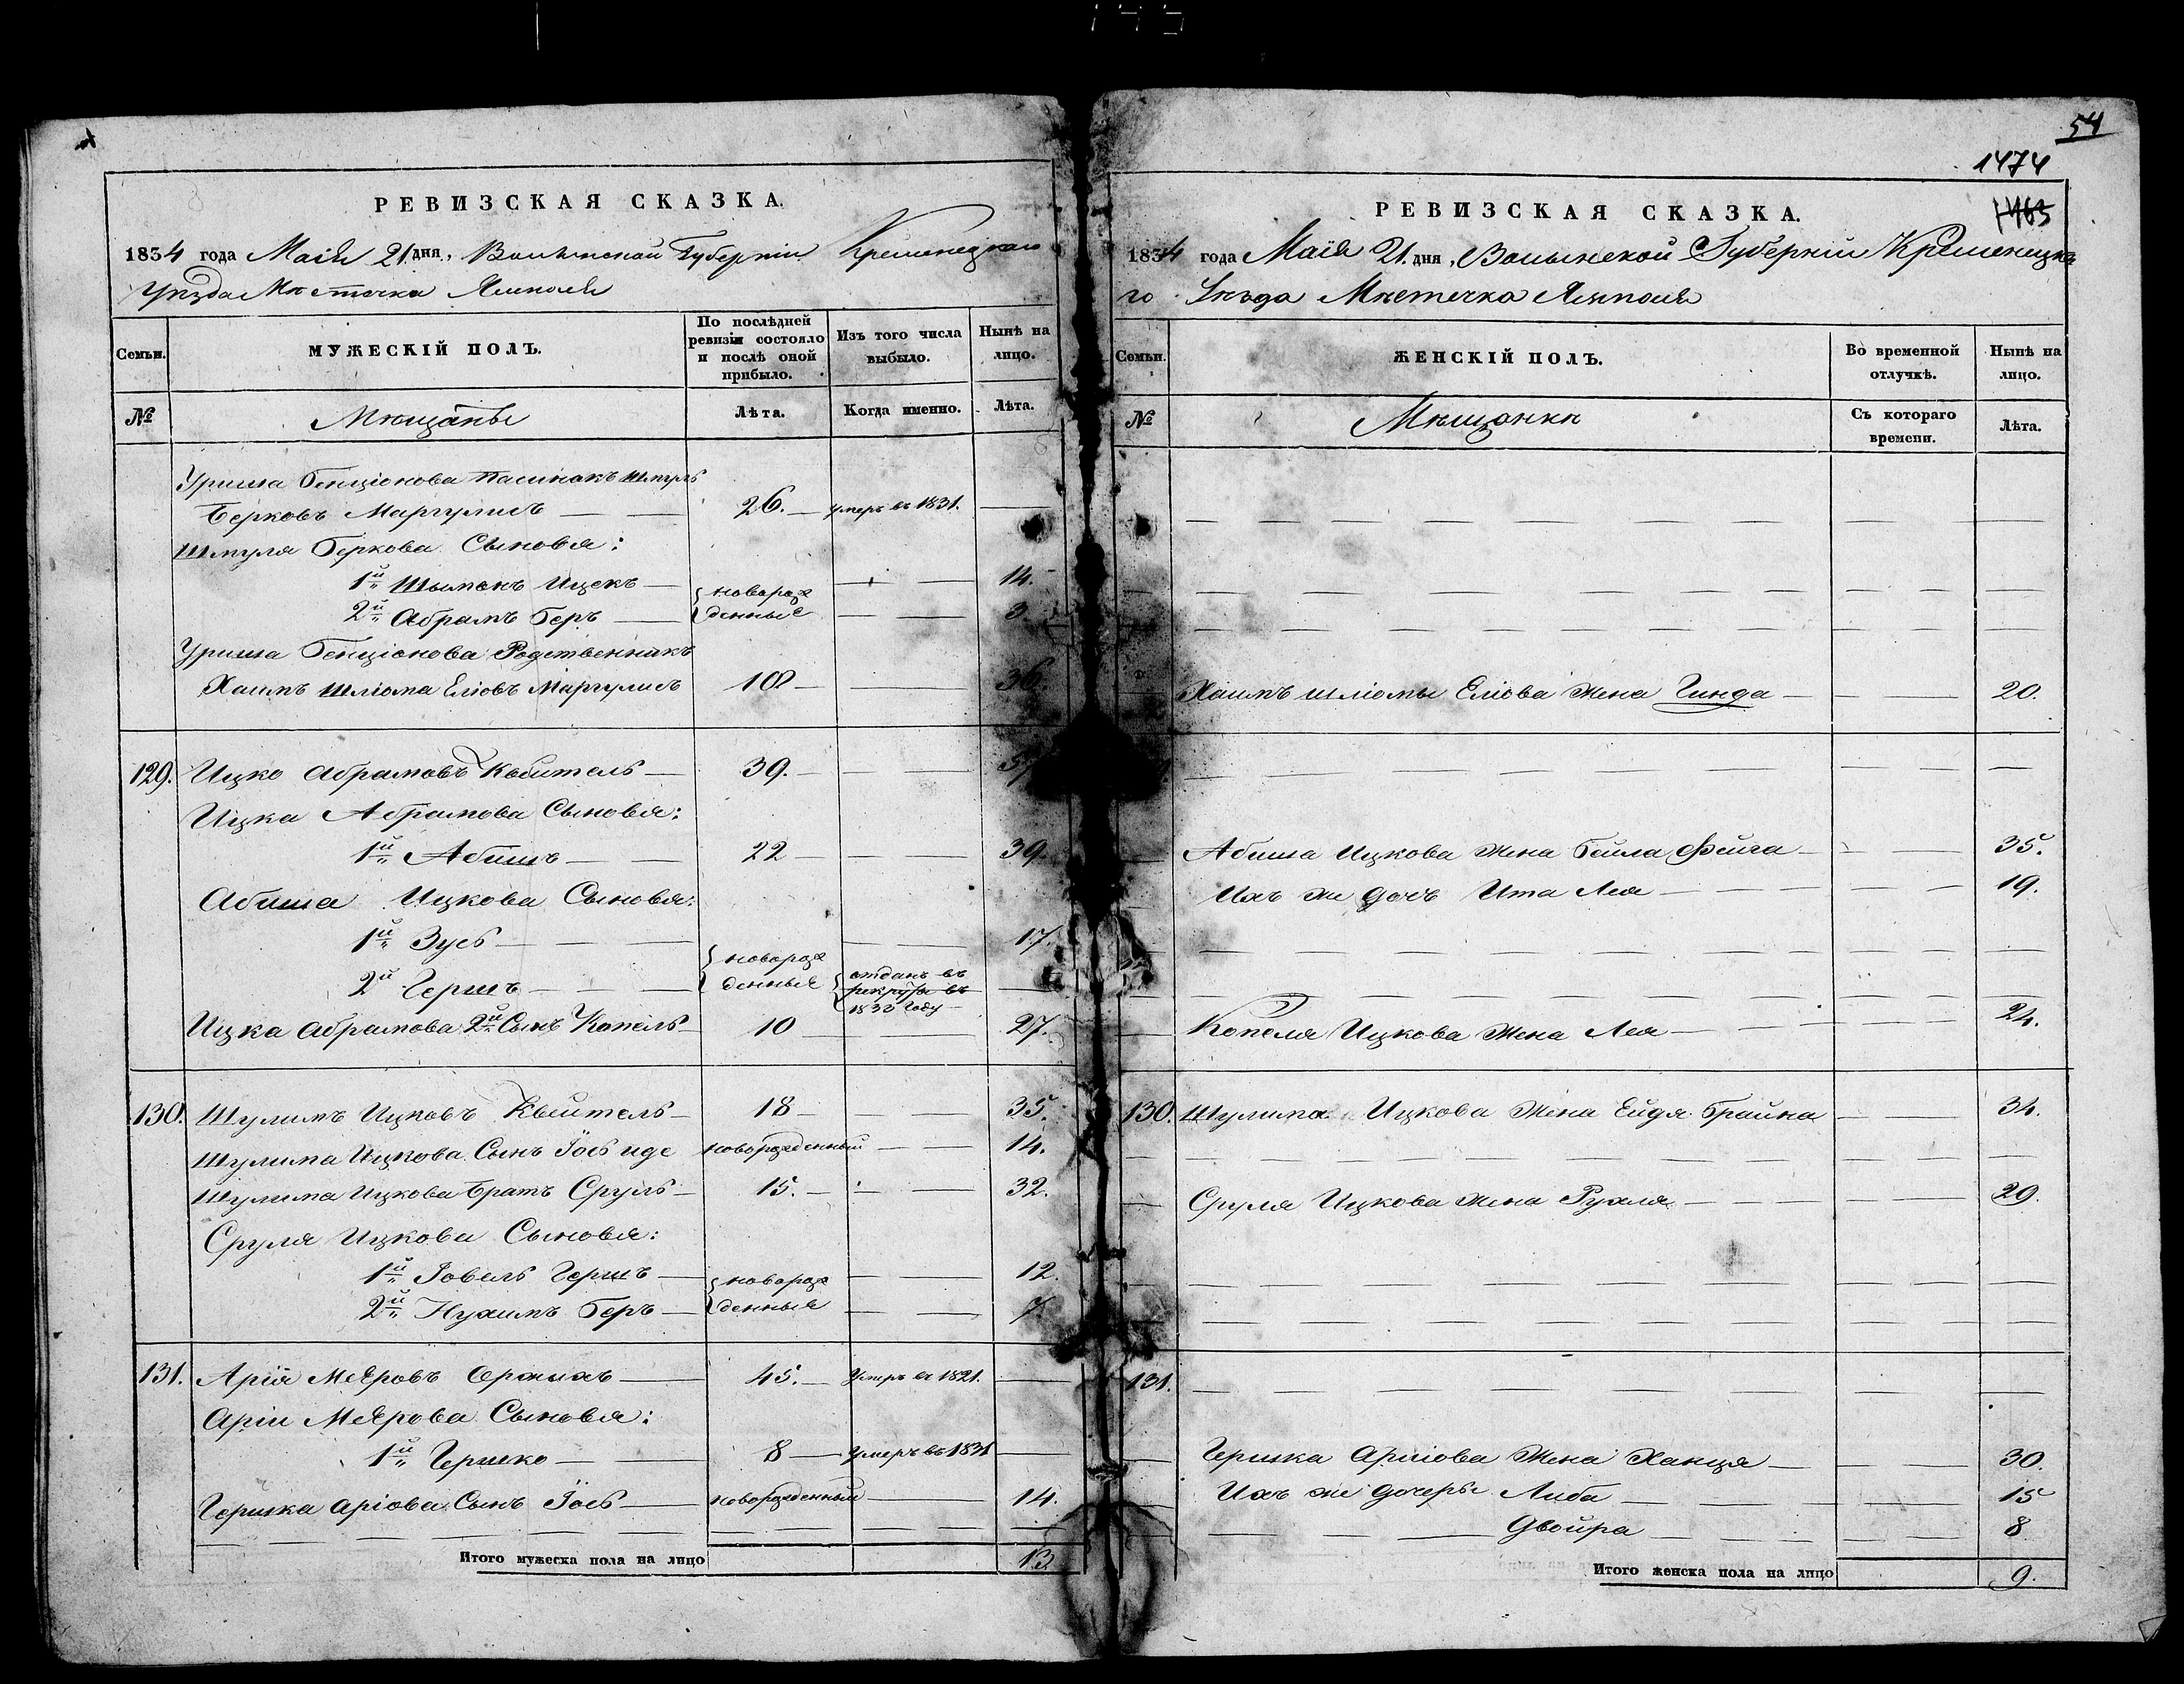 54
1474
1463
РЕВИЗСКАЯ СКАЗКА.
1834 года Маія 21 дня, Волынской Губерніи Кременецкаго
Уѣзда Мѣстечка Ямполя
Семьи. МУЖЕСКІЙ ПОЛЪ. По послѣдней ревизіи состояло и послѣ оной прибыло. Изъ того числа выбыло. Нынѣ на лицо.
№ Мѣщаны Лѣта. Когда именно. Лѣта.
Уриша Бенціонова пасинокъ Шмуль
Берковъ Маргулисъ 26. умеръ въ 1831.
Шмуля Беркова Сыновья:
1й Шымонъ Ицекъ новорож 14.
2й Абрамъ Беръ денные 3.
Уриша Бенціонова Родственникъ
Хаимъ Шліома Еліовъ Маргулисъ 18 36.
129. Ицко Абрамовъ Квитель 39. 57
Ицка Абрамова Сыновья:
1й Абишъ 22 39.
Абиша Ицкова Сыновья:
1й Зусь новорож 17.
2й Гершъ денные отданъ въ рекруты въ 1830 году
Ицка Абрамова 2й Сынъ Копель 10 27.
130. Шулимъ Ицковъ Квитель 18 35.
Шулима Ицкова Сынъ Іось иде новорожденный 14.
Шулима Ицкова братъ Сруль 15. 32.
Сруля Ицкова Сыновья:
1й Іовель Гершъ новорож 12.
2й Нухимъ Беръ денные 7.
131. Арія Меяровъ 45. Умеръ въ 1821.
Аріи Меярова Сыновья:
1й Гершко 8 умеръ въ 1831
Гершка Аріова Сынъ Іось новорожденный 14.
Итого мужеска пола на лицо 13
РЕВИЗСКАЯ СКАЗКА.
1834 года Маія 21. дня, Волынской Губерніи Кременецка
го Уѣзда Мѣстечка Ямполя
Семьи. ЖЕНСКІЙ ПОЛЪ. Во временной отлучкѣ. Нынѣ на лицо.
№ Мѣщанки Съ котораго времени. Лѣта.
Хаимъ Шліомы Еліова жена Гинда 20.
Абиша Ицкова жена Бейла Фейга 35.
Ихъ же дочь Ита Лея 19.
Копеля Ицкова жена Лея 24.
130. Шулима Ицкова жена Ейдя Брайна 34.
Сруля Ицкова жена Рухля 29.
131.
Гершка Аріова жена Ханця 30.
Ихъ же дочери Либа 15
Двойра 8
Итого женска пола на лицо 9.